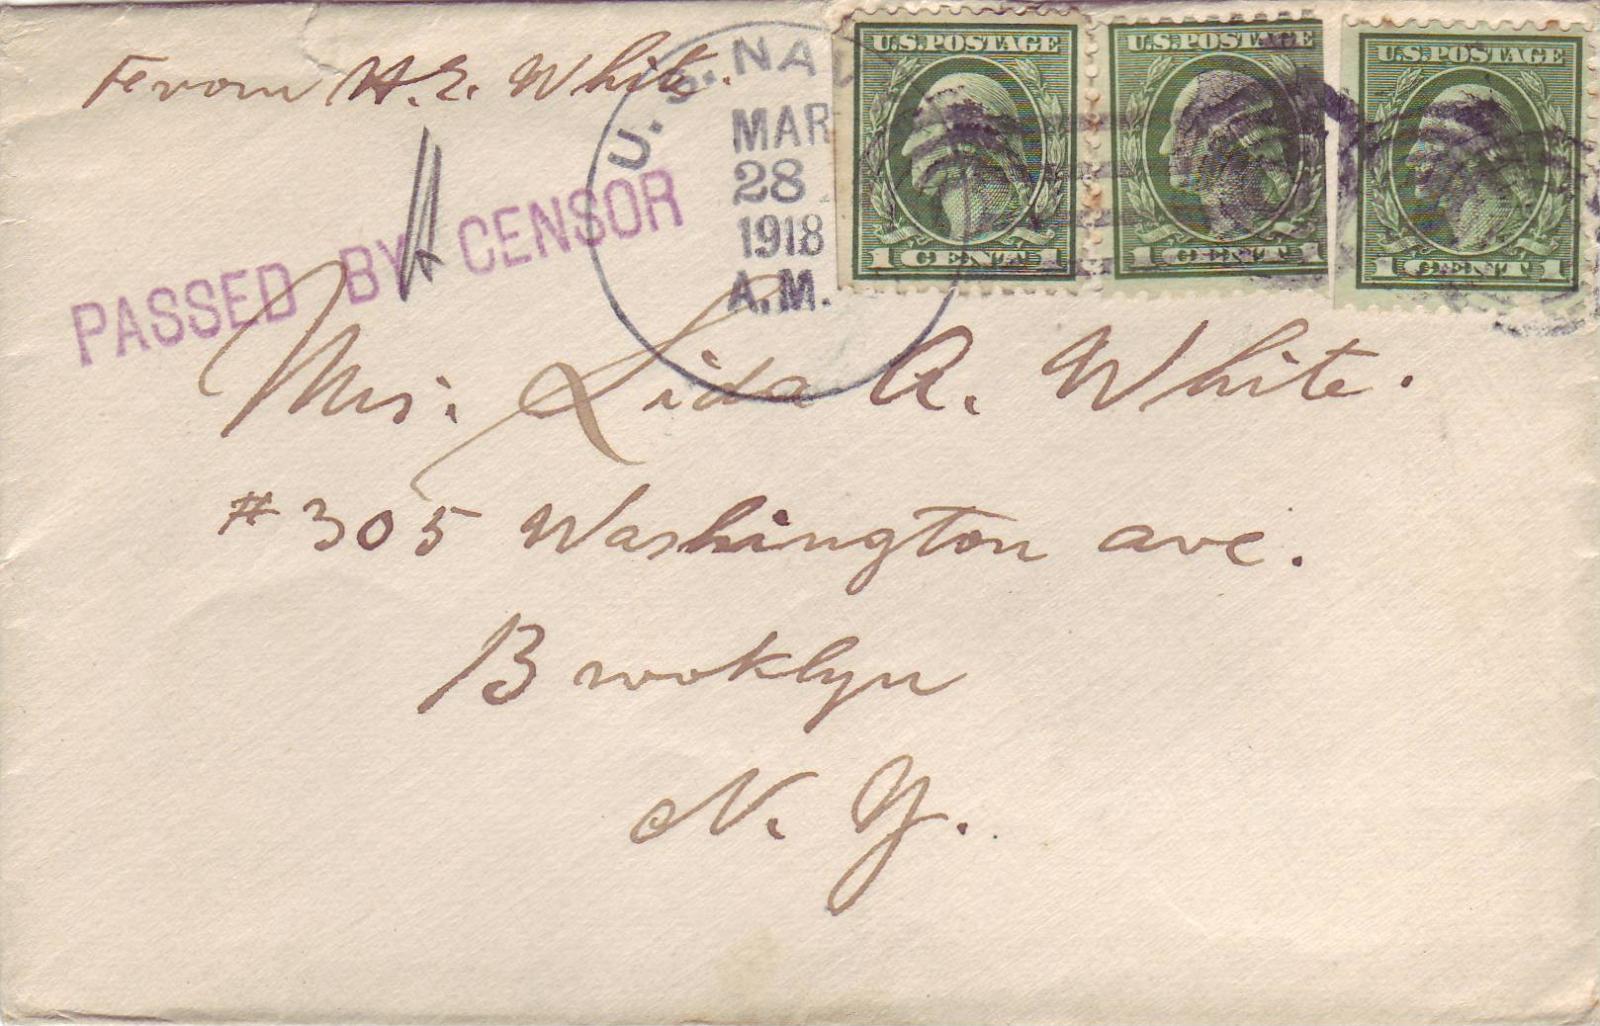 From H. E. White.
U.S. NAV
MAR
28
1918
A.M.
U.S.POSTAGE
1 CENT 1
U.S.POSTAGE
1 CENT 1
U.S.POSTAGE
1 CENT 1
PASSED BY CENSOR
Mrs. Lida A. White.
# 305 Washington ave.
Brooklyn
N. Y.